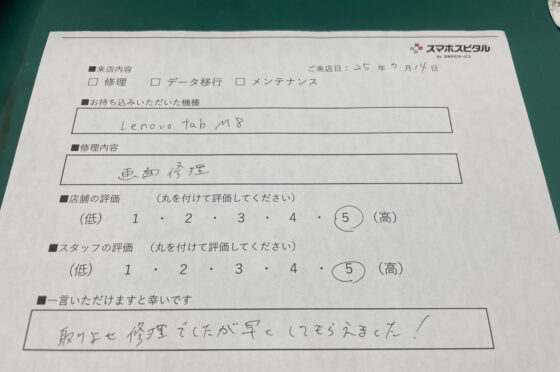 スマホスピタル
■来店内容
ご来店日：25年7月14日
□ 修理 □ データ移行 □ メンテナンス
■お持ち込みいただいた機種
Lenovo tab M8
■修理内容
画面修理
■店舗の評価 （丸を付けて評価してください）
(低) 1 ・ 2 ・ 3 ・ 4 ・ 5 (高)
■スタッフの評価 （丸を付けて評価してください）
(低) 1 ・ 2 ・ 3 ・ 4 ・ 5 (高)
■一言いただけますと幸いです
取りよせ修理でしたが早くしてもらえました！